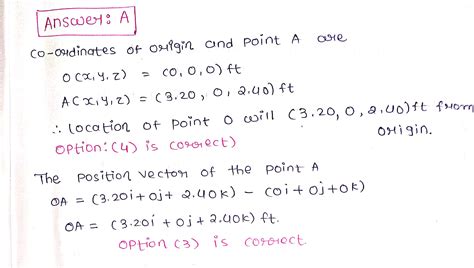 Answer: A
Co-ordinates of origin and point A are
O(x,y,z) = (0,0,0) ft
A(x,y,z) = (3.20, 0, 2.40) ft
∴ location of point O will (3.20, 0, 2.40) ft from
origin.
Option: (4) is correct)
The position vector of the point A
OA = (3.20i + 0j + 2.40k) - (0i + 0j + 0k)
OA = (3.20i + 0j + 2.40k) ft.
Option (3) is correct.